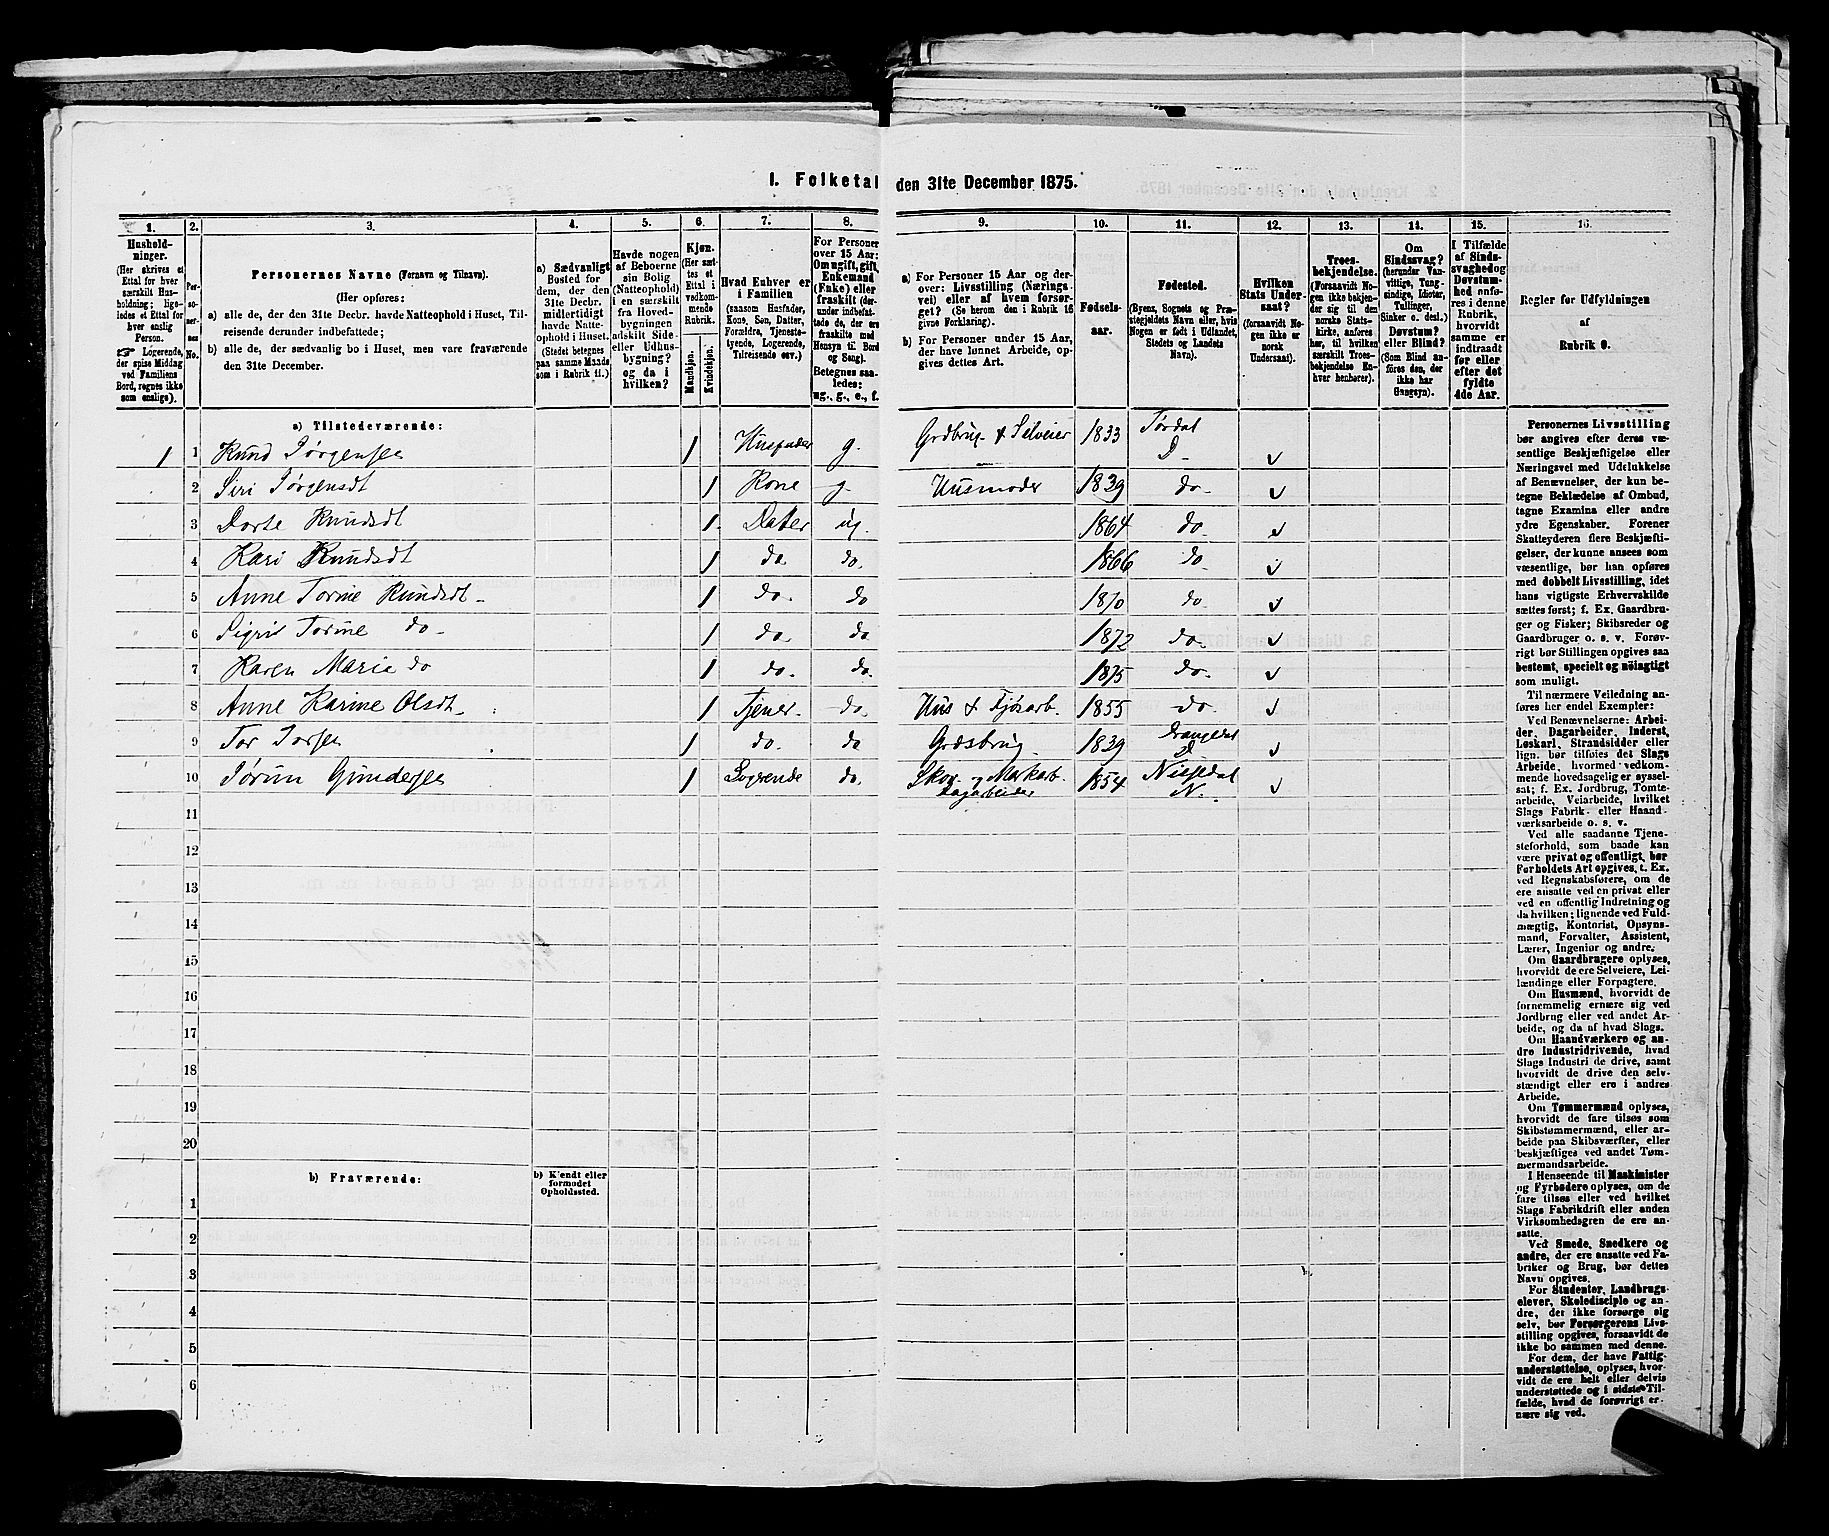 I. Folketal den 31te December 1875.
1.
2.
3.
4.
5.
6.
7.
8.
9.
10.
11.
12.
13.
14.
15.
16.
Hushold-
ninger.
(Her skrives et
Ettal for hver
særskilt Hus-
holdning; lige-
ledes et Ettal for
hver enslig
Person.
☞ Logerende,
der spise Middag
ved Familiens
Bord, regnes ikke
som enslige).
Per-
so-
ner-
nes
No.
Personernes Navne (Fornavn og Tilnavn).
(Her opføres:
a) alle de, der den 31te Decbr. havde Natteophold i Huset, Til-
reisende derunder indbefattede;
b) alle de, der sædvanlig bo i Huset, men vare fraværende
den 31te December.
a) Sædvanligt
Bosted for
dem, der den
31te Decbr.
midlertidigt
havde Natte-
ophold i Huset.
(Stedet betegnes
paa samme Maade
som i Rubrik 11.)
Havde nogen
af Beboerne
sin Bolig
(Natteophold)
i en særskilt
fra Hoved-
bygningen
adskilt Side
eller Udhus-
bygning?
og da i
hvilken?
Kjøn.
(Her sæt-
tes et
Ettal i
vedkom-
mende
Rubrik.
Mandkjøn.
Kvindekjøn.
Hvad Enhver er
i Familien
(saasom Husfader,
Kone, Søn, Datter,
Forældre, Tjeneste-
tyende, Logerende,
Tilreisende osv.)
For Personer
over 15 Aar:
Om ugift, gift,
Enkemand
(Enke) eller
fraskilt (der-
under indbefat-
tede de, der ere
fraskilte med
Hensyn til Bord
og Seng).
Betegnes saa-
ledes:
ug., g., e., f.
a) For Personer 15 Aar og der-
over: Livsstilling (Nærings-
vei) eller af hvem forsør-
get? (Se herom den i Rubrik 16
givne Forklaring).
b) For Personer under 15 Aar,
der have lønnet Arbeide, op-
gives dettes Art.
Fødsels-
aar.
Fødested.
(Byens, Sognets og Præ-
stegjeldets Navn eller, hvis
Nogen er født i Udlandet,
Stedets og Landets
Navn).
Hvilken
Stats Under-
saat?
(forsaavidt No-
gen ikke er
norsk
Undersaat).
Troes-
bekjendelse.
(Forsaavidt No-
gen ikke bekjen-
der sig til den
norske Stats-
kirke, anføres
her, til hvilken
særskilt Troes-
bekjendelse En-
hver henhører).
Om
Sindssvag?
(herunder Van-
vittige, Tung-
sindige, Idioter,
Tullinger,
Sinker o. desl.)
Døvstum?
eller Blind?
(Som Blind an-
føres den, der
ikke har
Gangsyn).
I Tilfælde
af Sinds-
svaghed og
Døvstum-
hed anfø-
res i denne
Rubrik,
hvorvidt
samme er
indtraadt
før eller
efter det
fyldte
4de Aar.
Regler for Udfyldningen
af
Rubrik 9.
a) Tilstedeværende:
1 1 Knud Jørgensen 1 Husfader g. Grdbrug. & Selveier 1833 Tørdal D. v
2 Siri Jørgensdt 1 Kone g. Husmoder 1839 do. v
3 Dorte Knudsdt 1 Datter ug. 1864 do. v
4 Kari Knudsdt 1 do do. 1866 do v
5 Anne Torine Knudsdt 1 do. do 1870 do. v
6 Sigrit Torine do 1 do. do 1872 do. v
7 Karen Marie do 1 do. do. 1875 do. v
8 Anne Karine Olsdt 1 Tjener do. Hus & Fjøsarb. 1855 do. v
9 Tor Torsen 1 do. do Grdsbrug. 1839 Drangedal D v
10 Jørun Gundersen 1 Logerende do. Skov og Markarb. 1854 Nissedal v
dagarbeider N.
11
12
13
14
15
16
17
18
19
20
b) Fraværende:
b) Kjendt eller
formodet
Opholdssted.
1
2
3
4
5
6
Personernes Livsstilling
bør angives efter deres væ-
sentlige Beskjæftigelse eller
Næringsvei med Udelukkelse
af Benævnelser, der kun be-
tegne Beklædelse af Ombud,
tagne Examina eller andre
ydre Egenskaber. Forener
Skatteyderen flere Beskjæfti-
gelser, der kunne ansees som
væsentlige, bør han opføres
med dobbelt Livsstilling, idet
hans vigtigste Erhvervskilde
sættes først; f. Ex. Gaardbru-
ger og Fisker; Skibsreder og
Gaardbruger o. s. v. Forøv-
rigt bør Stillingen opgives saa
bestemt, specielt og nöiagtigt
som muligt.
Til nærmere Veiledning an-
føres her endel Exempler:
Ved Benævnelserne: Arbei-
der, Dagarbeider, Inderst,
Løskarl, Strandsidder eller
lign. bør tilføies det Slags
Arbeide, hvormed vedkom-
mende hovedsagelig er syssel-
sat; f. Ex. Jordbrug, Tomte-
arbeide, Veiarbeide, hvilket
Slags Fabrik- eller Haand-
værksarbeide o. s. v.
Ved alle saadanne Tjene-
steforhold, som baade kan
være privat og offentligt, bør
Forholdets Art opgives, t. Ex.
ved Regnskabsførere, om de
ere ansatte ved en privat eller
ved en offentlig Indretning og
da hvilken; lignende ved Fuld-
mægtig, Kontorist, Opsyns-
mand, Forvalter, Assistent,
Lærer, Ingeniør og andre.
Om Gaardbrugere oplyses,
hvorvidt de ere Selveiere, Lei-
lændinge eller Forpagtere.
Om Husmænd, hvorvidt de
fornemmelig ernære sig ved
Jordbrug eller ved andet Ar-
beide, og da af hvad Slags.
Om Haandværkere og an-
dre Industridrivende, hvad
Slags Industri de drive, samt
hvorvidt de drive den selv-
stændigt eller ere i andres
Arbeide.
Om Tømmermænd oplyses,
hvorvidt de fare tilsøs som
Skibstømmermænd, eller ar-
beide paa Skibsværfter, eller
beskjæftiges ved andet Tøm-
mermandsarbeide.
I Henseende til Maskinister
og Fyrbødere oplyses, om de
fare tilsøs eller ved hvilket
Slags Fabrikdrift eller anden
Virksomhedsgren de ere an-
satte.
Ved Smede, Snedkere og
andre, der ere ansatte ved Fa-
briker og Brug, bør dettes
Navn opgives.
For Studenter, Landbrugs-
elever, Skoledisciple og an-
dre, der ikke forsørge sig
selv, bør Forsørgerens Livs-
stilling opgives, forsaavidt de
ikke bo sammen med denne.
For dem, der have Fattig-
understøttelse, oplyses, hvor-
vidt de ere helt eller delvis
understøttede og i sidste Til-
fælde, hvad de forøvrigt er-
nære sig ved.